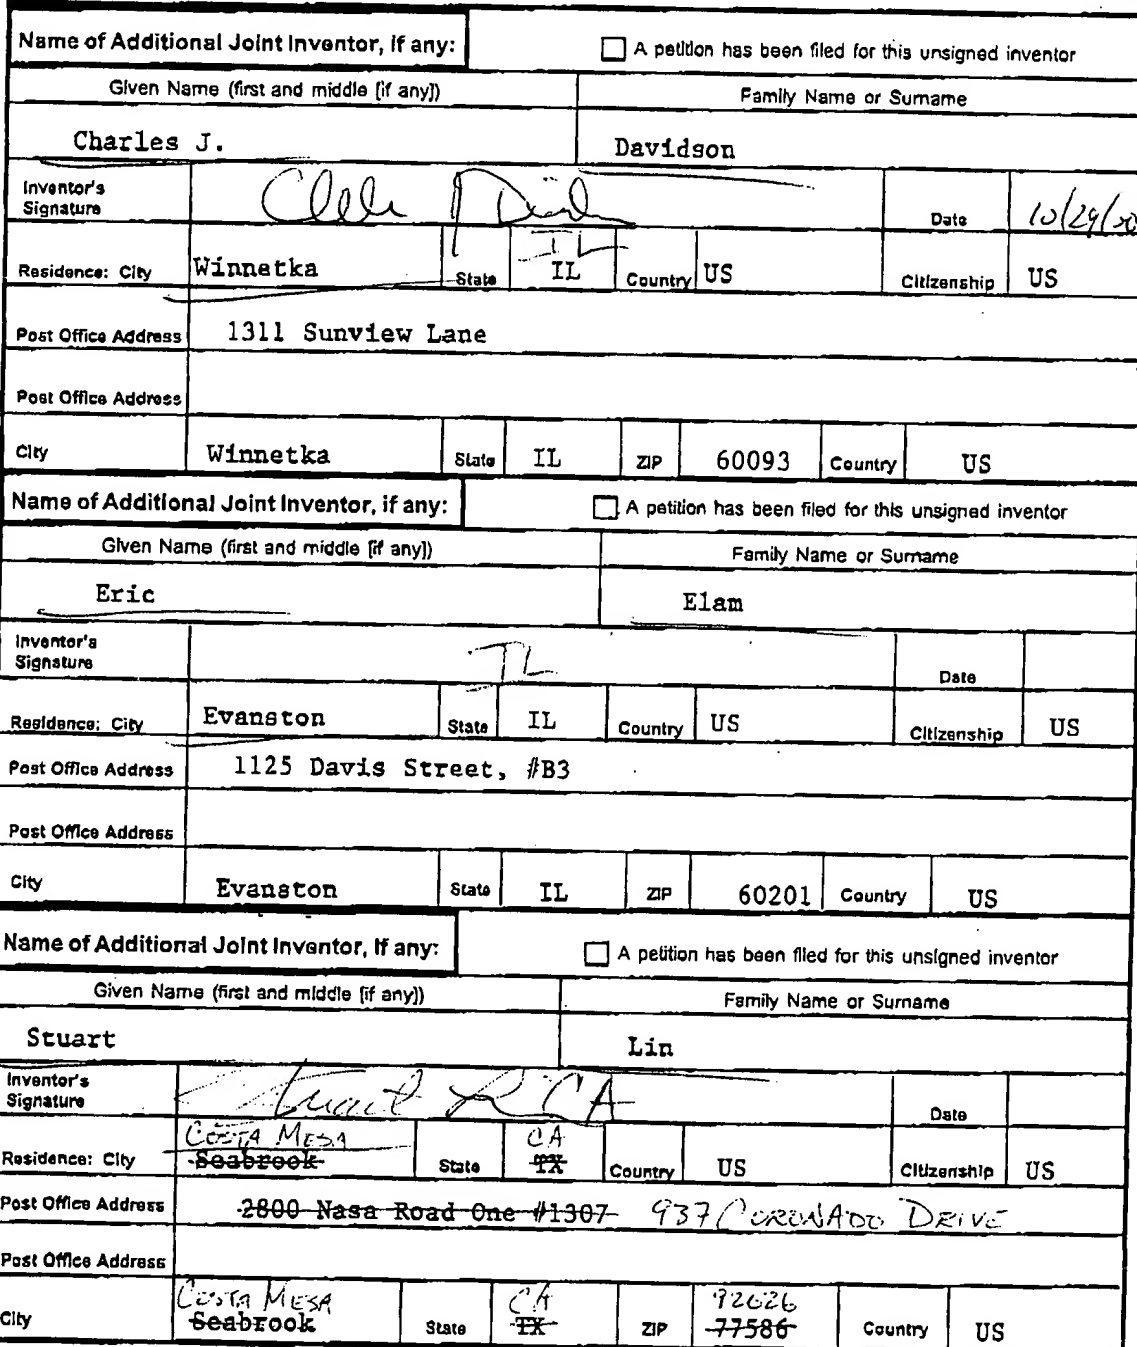 Name of Additional Joint Inventor, if any: A petition has been filed for this unsigned inventor
Given Name (first and middle [if any]) Family Name or Surname
Charles J. Davidson
Inventor's Signature Date 10/29/00
IL
Residence: City Winnetka State IL Country US Citizenship US
Post Office Address 1311 Sunview Lane
Post Office Address
City Winnetka State IL ZIP 60093 Country US
Name of Additional Joint Inventor, if any: A petition has been filed for this unsigned inventor
Given Name (first and middle [if any]) Family Name or Surname
Eric Elam
Inventor's Signature IL Date
Residence: City Evanston State IL Country US Citizenship US
Post Office Address 1125 Davis Street, #B3
Post Office Address
City Evanston State IL ZIP 60201 Country US
Name of Additional Joint Inventor, if any: A petition has been filed for this unsigned inventor
Given Name (first and middle [if any]) Family Name or Surname
Stuart Lin
Inventor's Signature Stuart CA Date
COSTA MESA CA
Residence: City Seabrook State TX Country US Citizenship US
Post Office Address 2800 Nasa Road One #1307 937 CORONADO DRIVE
Post Office Address
COSTA MESA CA 92626
City Seabrook State TX ZIP 77586 Country US